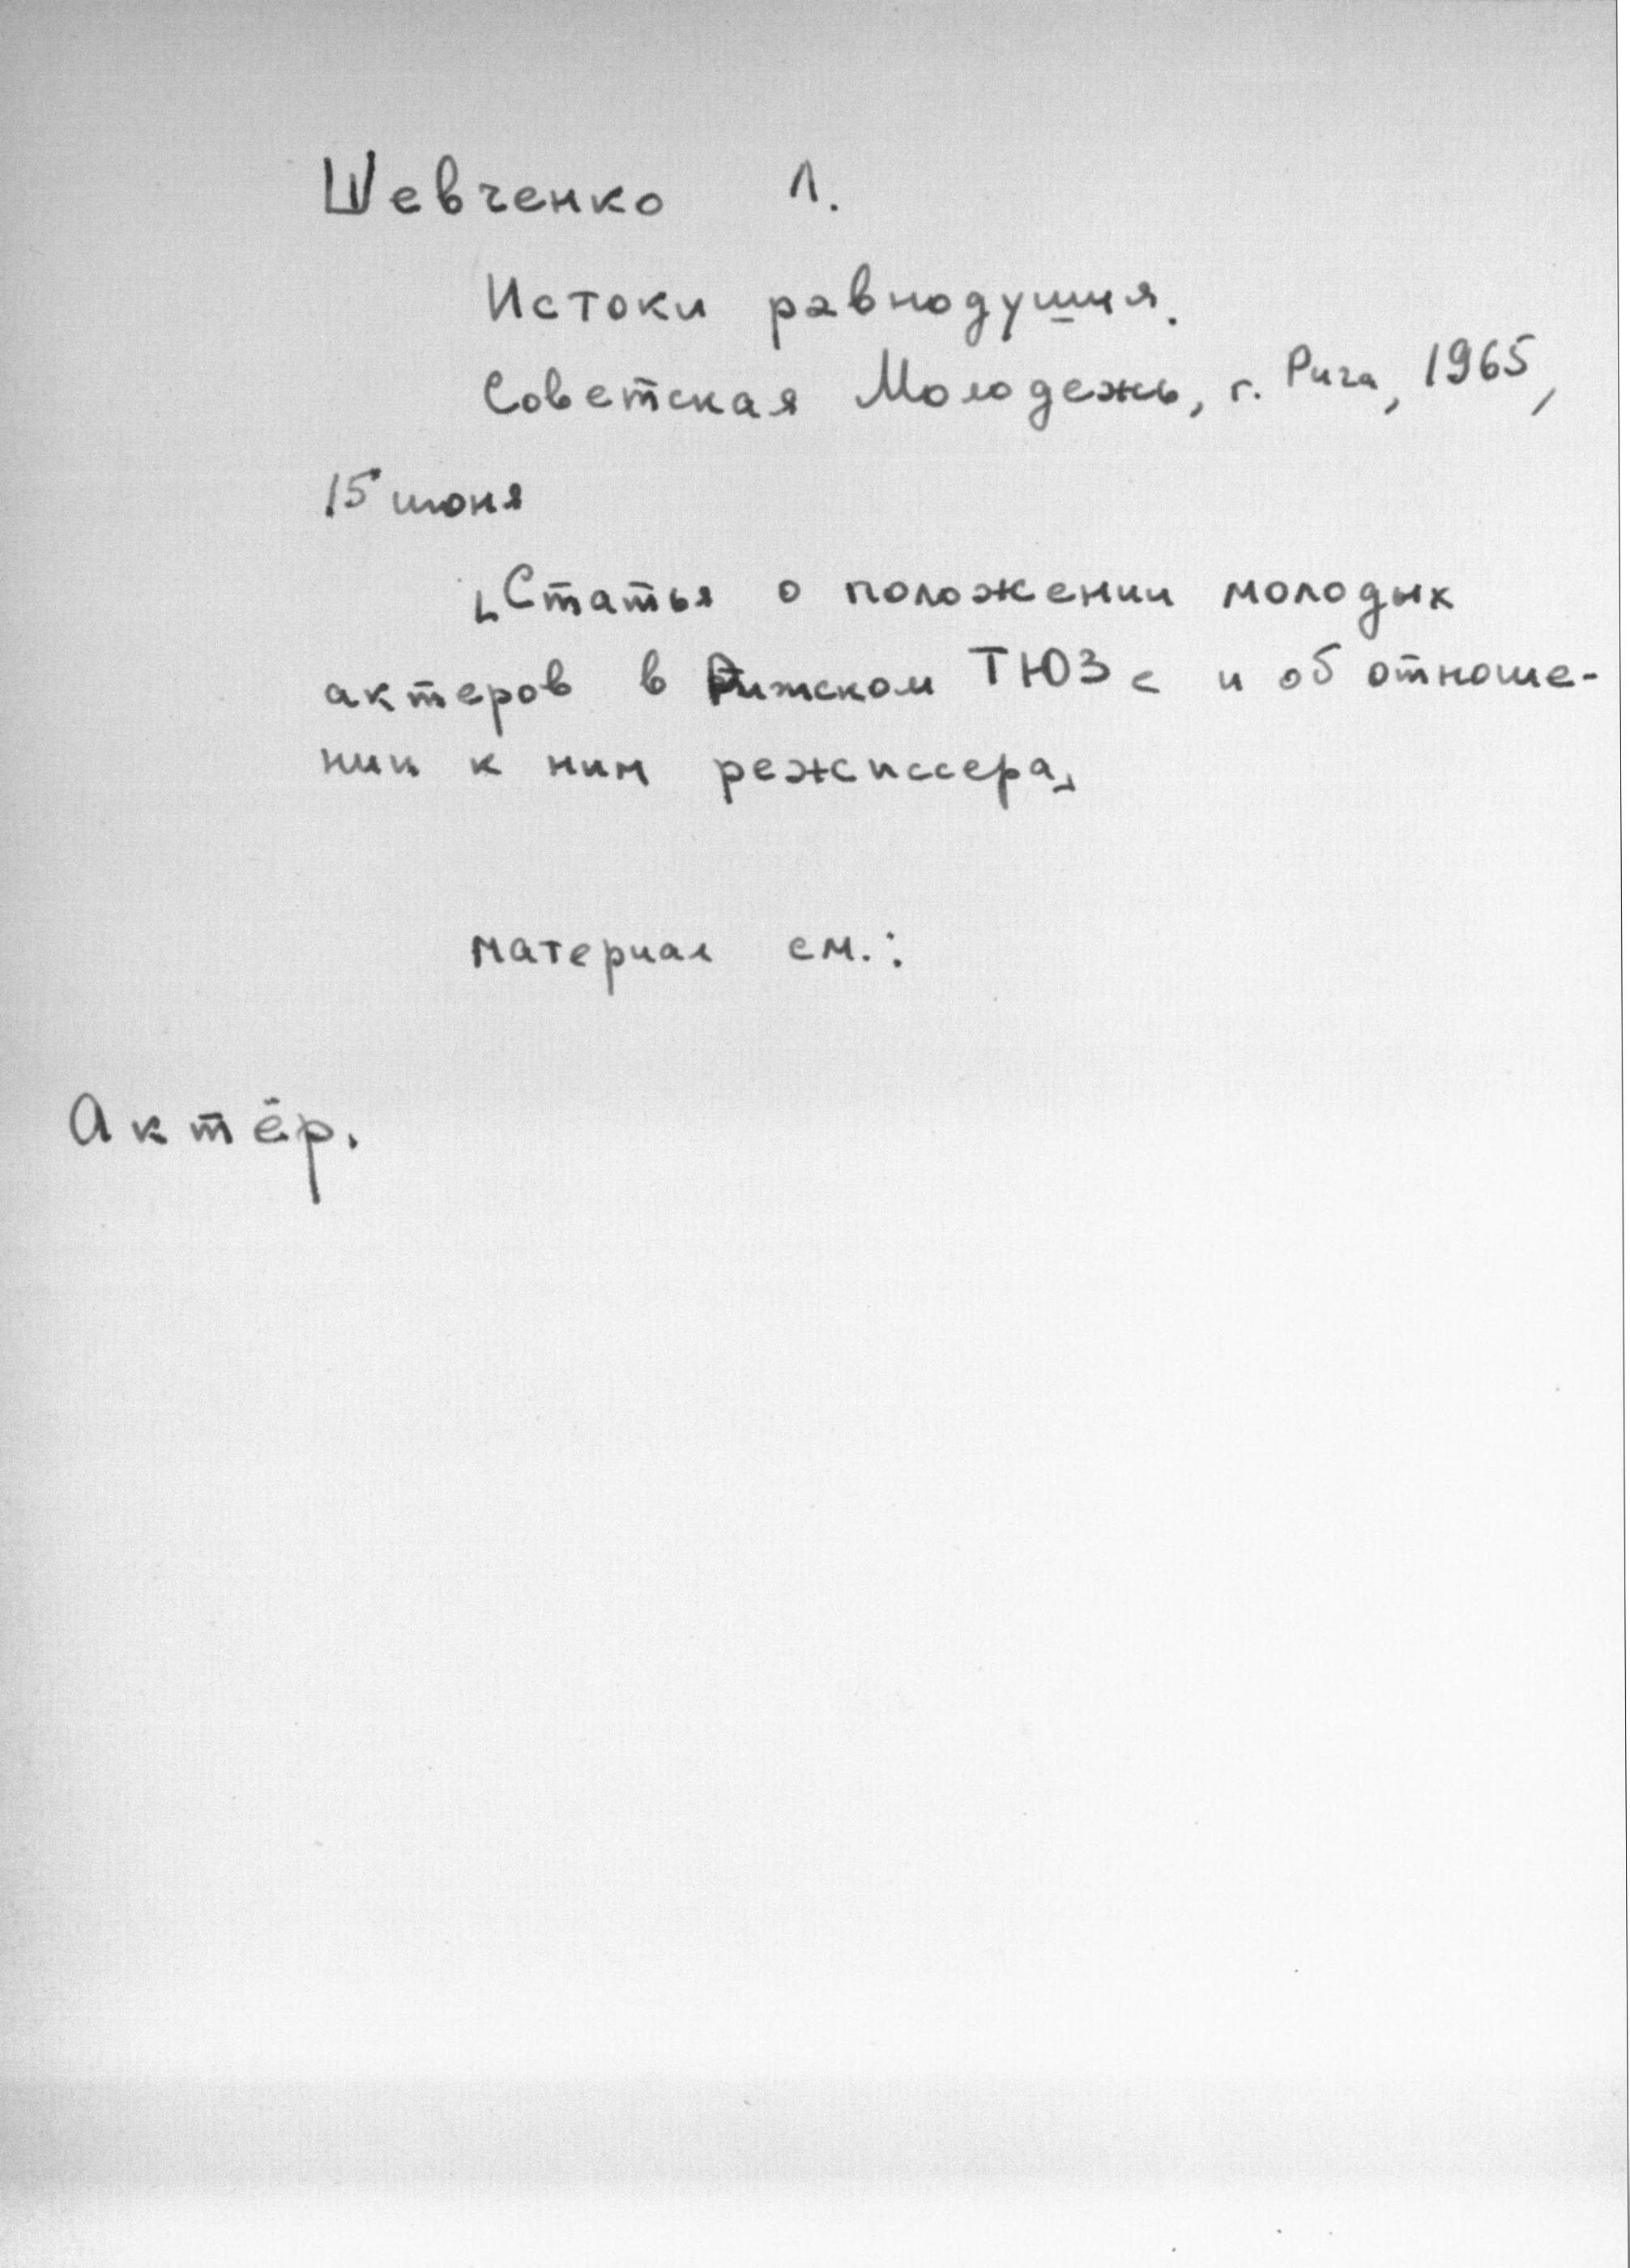 Шевченко Л.
Истоки равнодушия.
Советская Молодежь, г. Рига, 1965,
15 июня
[Статья о положении молодых
актеров в Рижском ТЮЗе и об отноше-
нии к ним режиссера]
материал см.:
Актёр.